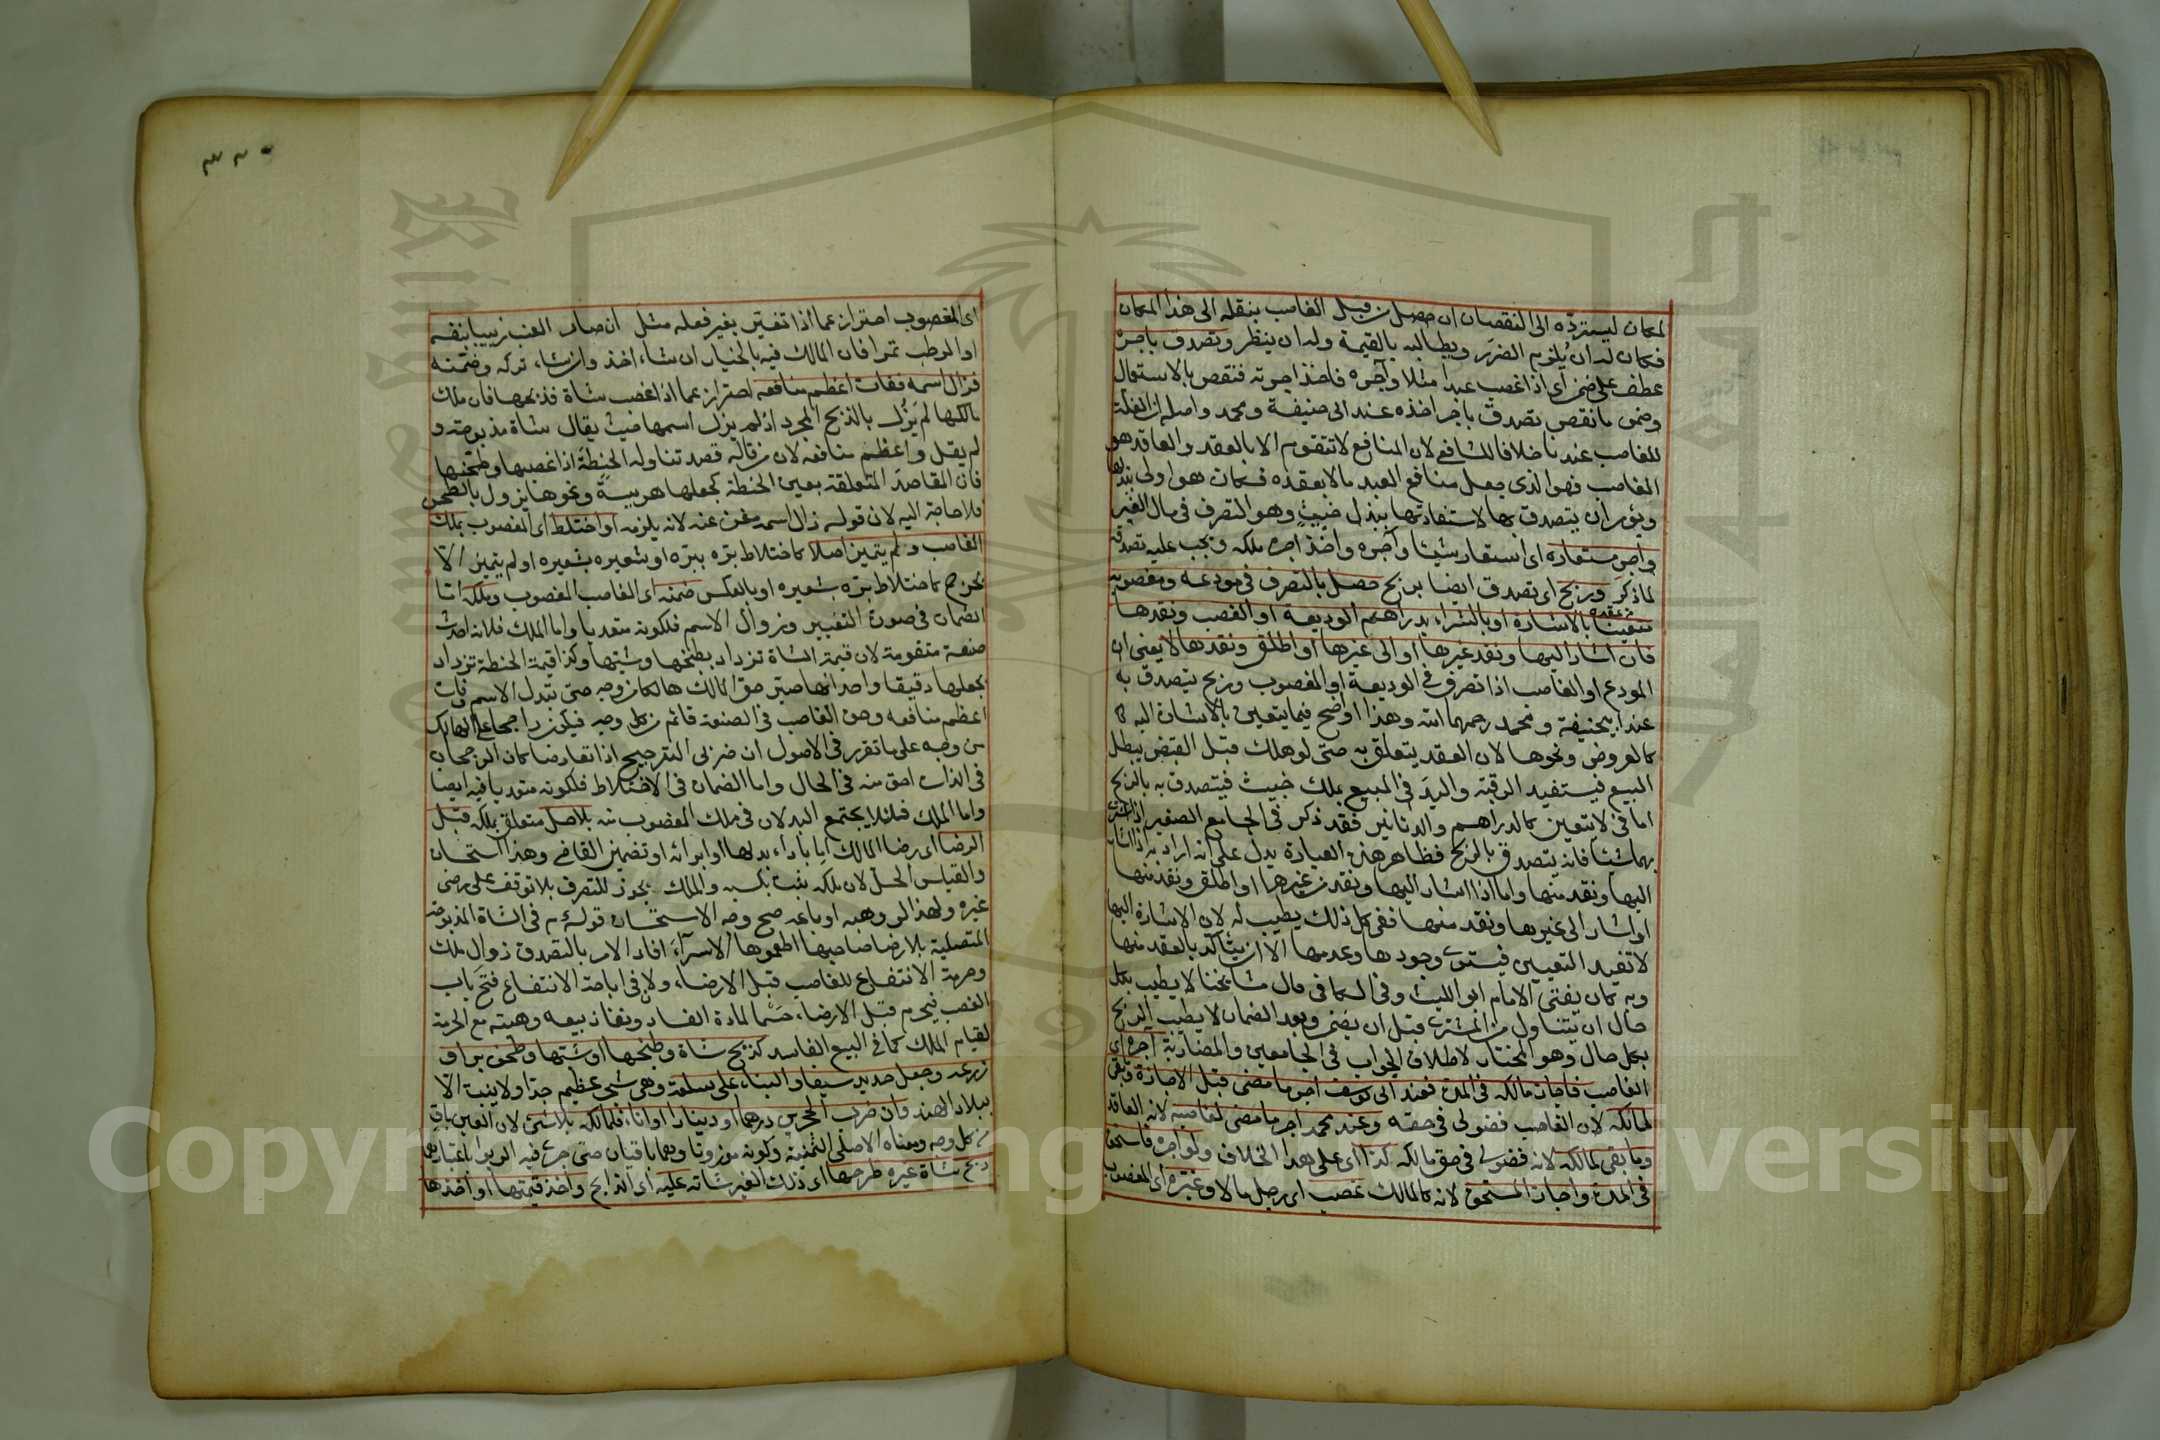 لمكان ليسترده الى النقصان ان حصل من قبل الغاصب بنقله الى هذا المكان
فكان له ان يلتزم الضرر ويطالبه بالقيمة وله ان ينظر وتصدق باجره
عطف على ضمن أي اذا غصب عبدا مثلا وآجره فاخذ اجرته فنقص بالاستعمال
وضمن ما نقص تصدق باجر اخذه عند ابى حنيفة ومحمد واصله ان الغلة
للغاصب عندنا خلافا للشافعى لان المنافع لا تتقوم الا بالعقد والعاقد هو
الغاصب فهو الذى جعل منافع العبد مالا بعقده فكان هو اولى ببدلها
ويؤمر ان يتصدق بها لاستفادتها ببدل خبيث وهو التصرف فى مال الغير
واجر مستعاره اى استعار شيئا وآجره واخذ اجره ملكه ويجب عليه تصدقه
لما ذكر وربح اى تصدق ايضا بربح حصل بالتصرف فى مودعه ومغصوبه
متعينا بالاشارة او بالشراء بدراهم الوديعة او الغصب ونقدها
فان اشار اليها ونقد غيرها او الى غيرها او اطلق ونقدها لا يعنى ان
المودع او الغاصب اذا تصرف فى الوديعة او المغصوب وربح يتصدق به
عند ابيحنيفة ومحمد رحمهما الله وهذا اوضح فيما يتعين بالاشارة اليه
كالعروض ونحوها لان العقد يتعلق به حتى لو هلك قبل القبض يبطل
البيع فيستفيد الرقبة واليد فى المبيع بملك خبيث فيتصدق به بالربح
اما فى لا يتعين كالدراهم والدنانير فقد ذكر فى الجامع الصغير اذا اشترى
بهما شيئا فانه يتصدق بالربح فظاهر هذه العبارة يدل على انه اراد به اذا اشار
اليها ونقد منها واما اذا اشار اليها ونقد من غيرها او اطلق ونقد منها
او اشار الى غيرها ونقد منها ففى كل ذلك يطيب له لان الاشارة اليها
لا تفيد التعيين فيستوى وجودها وعدمها الا ان يتأكد بالعقد منها
وبه كان يفتى الامام ابو الليث وفى الكافى قال مشايخنا لا يطيب بكل
حال ان يتناول من المشترى قبل ان يضمن وبعد الضمان لا يطيب الربح
بكل حال وهو المختار لاطلاق الجواب فى الجامعين والمضاربة اجره اى
الغاصب فاجاز مالكه فى المدة فعند ابى يوسف اجر ما مضى قبل الاجازة وبقى
لمالكه لان الغاصب فضولى فى حقه وعند محمد اجر ما مضى لغاصبه لانه العاقد
وما بقى لمالكه لانه فضولى فى حق مالكه كذا اى على هذا الخلاف ولو اجره فاستحق
فى المدة واجاز المستحق لانه كالمالك غصب اى رجل مالا وغيره اى المغصوب
٣٢٠
اى المغصوب احتراز عما اذا تغير بغير فعله مثل ان صار العنب زبيبا بنفسه
او الرطب تمرا فان المالك فيه بالخيار ان شاء اخذ وان شاء تركه وضمنه
فزال اسمه ففات اعظم منافعه احتراز عما اذا غصب شاة فذبحها فان ملك
مالكها لم يزل بالذبح المجرد اذ لم يزل اسمها حيث يقال شاة مذبوحة و
لم يقل واعظم منافعه لان من قاله قصد تناوله الحنطة اذا غصبها وطحنها
فان المقاصد المتعلقة بعين الحنطة كجعلها هريسة ونحوها يزول بالطحن
فلا حاجة اليه لان قوله زال اسمه مغن عنه لانه يلزمه او اختلط اى المغصوب بملك
الغاصب ولم يتميز اصلا كاختلاط بره ببره او شعيره بشعيره او لم يتميز الا
بحرج كاختلاط بره بشعيره او بالعكس ضمنه اى الغاصب المغصوب وملكه اما
الضمان فى صورة التغيير وزوال الاسم فلكونه متعديا واما الملك فلانه احدث
صنعة متقومة لان قيمة الشاة تزداد بطبخها وشيها وكذا قيمة الحنطة تزداد
بجعلها دقيقا واحداثها صير حق المالك هالكا من وجه حتى تبدل الاسم وفات
اعظم منافعه وحق الغاصب فى الصنعة قائم من كل وجه فيكون راجحا على الهالك
من وجه على ما تقرر فى الاصول ان ضربى الترجيح اذا تعارضا كان الرجحان
فى الذات احق منه فى الحال واما الضمان فى الاختلاط فلكونه متعديا فيه ايضا
واما الملك فلئلا يجتمع البدلان فى ملك المغصوب منه بلا حل متعلق بملكه قبل
الرضا اى رضا المالك اما باداء بدلها او ابرائه او تضمين القاضى وهذا استحسان
والقياس الحل لان ملكه يثبت بكسبه والملك يجوز للتصرف بلا توقف على رضى
غيره ولهذا لو وهبه او باعه صح وجه الاستحسان قوله عم فى الشاة المذبوحة
المصلية بلا رضا صاحبها اطعموها الاسرآء افاد الامر بالتصدق زوال ملك
وحرمة الانتفاع للغاصب قبل الارضاء ولان فى اباحة الانتفاع فتح باب
الغصب فيحرم قبل الارضاء حسما لمادة الفساد ونفاذ بيعه وهبته مع الحرمة
لقيام الملك كما فى البيع الفاسد كذبح شاة وطبخها او شيها وطحن بر او
زرعه وجعل حديد سيفا والبناء على ساجة وهى شجر عظيم جدا ولا ينبت الا
ببلاد الهند وان ضرب الحجرين درهما او دينارا او اناء فلمالكه بلا شئ لان العين باق
من كل وجه ومعناه الاصلى الثمنية وكونه موزونا وهما باقيان حتى جرى فيه الربوا باعتبارهما
ذبح شاة غيره طرحها اى ذلك الغير شاته عليه اى الذابح واخذ قيمتها او اخذها
Copyright © King Saud University